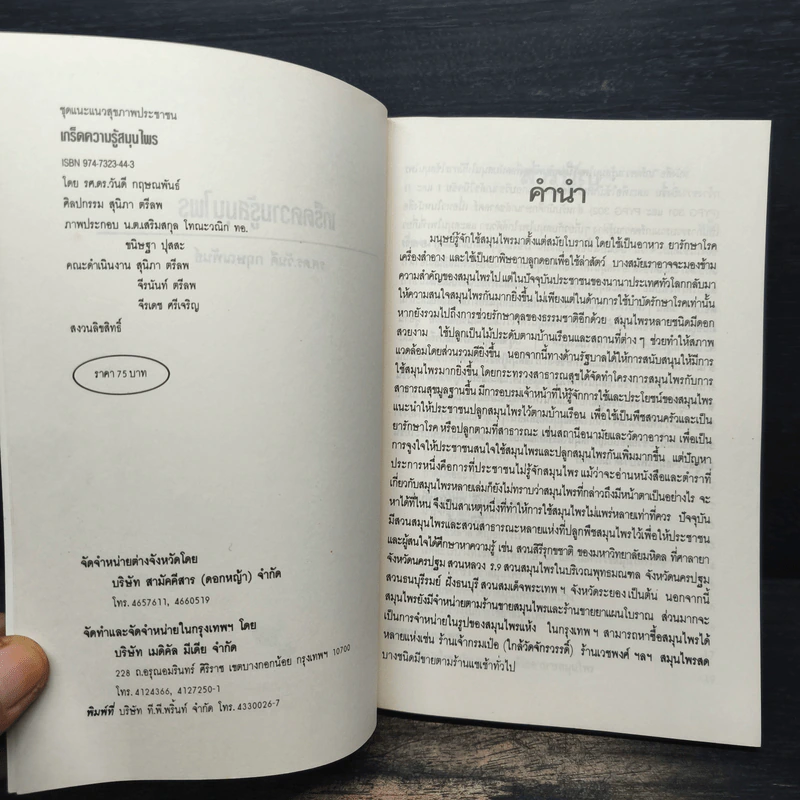 ชุดแนะแนวสุขภาพประชาชน
เกร็ดความรู้สมุนไพร
ISBN 974-7323-44-3
โดย รศ.ดร.วันดี กฤษณพันธ์
ศิลปกรรม สุนิภา ตรีลพ
ภาพประกอบ น.ต.เสริมสกุล โทณะวณิก ทอ.
ขนิษฐา ปุสสะ
คณะดำเนินงาน สุนิภา ตรีลพ
จีรนันท์ ตรีลพ
จีรเดช ศรีเจริญ
สงวนลิขสิทธิ์
ราคา 75 บาท
จัดจำหน่ายต่างจังหวัดโดย
บริษัท สามัคคีสาร (ดอกหญ้า) จำกัด
โทร. 4657611, 4660519
จัดทำและจัดจำหน่ายในกรุงเทพฯ โดย
บริษัท เมดิคัล มีเดีย จำกัด
228 ถ.อรุณอมรินทร์ ศิริราช เขตบางกอกน้อย กรุงเทพฯ 10700
โทร. 4124366, 4127250-1
พิมพ์ที่ บริษัท ที.พี.พริ้นท์ จำกัด โทร. 4330026-7
คำนำ
มนุษย์รู้จักใช้สมุนไพรมาตั้งแต่สมัยโบราณ โดยใช้เป็นอาหาร ยารักษาโรค
เครื่องสำอาง และใช้เป็นยาพิษอาบลูกดอกเพื่อใช้ล่าสัตว์ บางสมัยเราอาจจะมองข้าม
ความสำคัญของสมุนไพรไป แต่ในปัจจุบันประชาชนของนานาประเทศทั่วโลกกลับมา
ให้ความสนใจสมุนไพรกันมากยิ่งขึ้น ไม่เพียงแต่ในด้านการใช้บำบัดรักษาโรคเท่านั้น
หากยังรวมไปถึงการช่วยรักษาดุลของธรรมชาติอีกด้วย สมุนไพรหลายชนิดมีดอก
สวยงาม ใช้ปลูกเป็นไม้ประดับตามบ้านเรือนและสถานที่ต่าง ๆ ช่วยทำให้สภาพ
แวดล้อมโดยส่วนรวมดียิ่งขึ้น นอกจากนี้ทางด้านรัฐบาลได้ให้การสนับสนุนให้มีการ
ใช้สมุนไพรมากยิ่งขึ้น โดยกระทรวงสาธารณสุขได้จัดทำโครงการสมุนไพรกับการ
สาธารณสุขมูลฐานขึ้น มีการอบรมเจ้าหน้าที่ให้รู้จักการใช้และประโยชน์ของสมุนไพร
แนะนำให้ประชาชนปลูกสมุนไพรไว้ตามบ้านเรือน เพื่อใช้เป็นพืชสวนครัวและเป็น
ยารักษาโรค หรือปลูกตามที่สาธารณะ เช่นสถานีอนามัยและวัดวาอาราม เพื่อเป็น
การจูงใจให้ประชาชนสนใจใช้สมุนไพรและปลูกสมุนไพรกันเพิ่มมากขึ้น แต่ปัญหา
ประการหนึ่งคือการที่ประชาชนไม่รู้จักสมุนไพร แม้ว่าจะอ่านหนังสือและตำราที่
เกี่ยวกับสมุนไพรหลายเล่มก็ยังไม่ทราบว่าสมุนไพรที่กล่าวถึงมีหน้าตาเป็นอย่างไร จะ
หาได้ที่ไหน จึงเป็นสาเหตุหนึ่งที่ทำให้การใช้สมุนไพรไม่แพร่หลายเท่าที่ควร ปัจจุบัน
มีสวนสมุนไพรและสวนสาธารณะหลายแห่งที่ปลูกพืชสมุนไพรไว้เพื่อให้ประชาชน
และผู้สนใจได้ศึกษาหาความรู้ เช่น สวนสิรีรุกขชาติ ของมหาวิทยาลัยมหิดล ที่ศาลายา
จังหวัดนครปฐม สวนหลวง ร.9 สวนสมุนไพรในบริเวณพุทธมณฑล จังหวัดนครปฐม
สวนธนบุรีรมย์ ฝั่งธนบุรี สวนสมเด็จพระเทพ ฯ จังหวัดระยอง เป็นต้น นอกจากนี้
สมุนไพรยังมีจำหน่ายตามร้านขายสมุนไพรและร้านขายยาแผนโบราณ ส่วนมากจะ
เป็นการจำหน่ายในรูปของสมุนไพรแห้ง ในกรุงเทพ ฯ สามารถหาซื้อสมุนไพรได้
หลายแห่งเช่น ร้านเจ้ากรมเป๋อ (ใกล้วัดจักรวรรดิ์) ร้านเวชพงศ์ ฯลฯ สมุนไพรสด
บางชนิดมีขายตามร้านแซเช้าทั่วไป